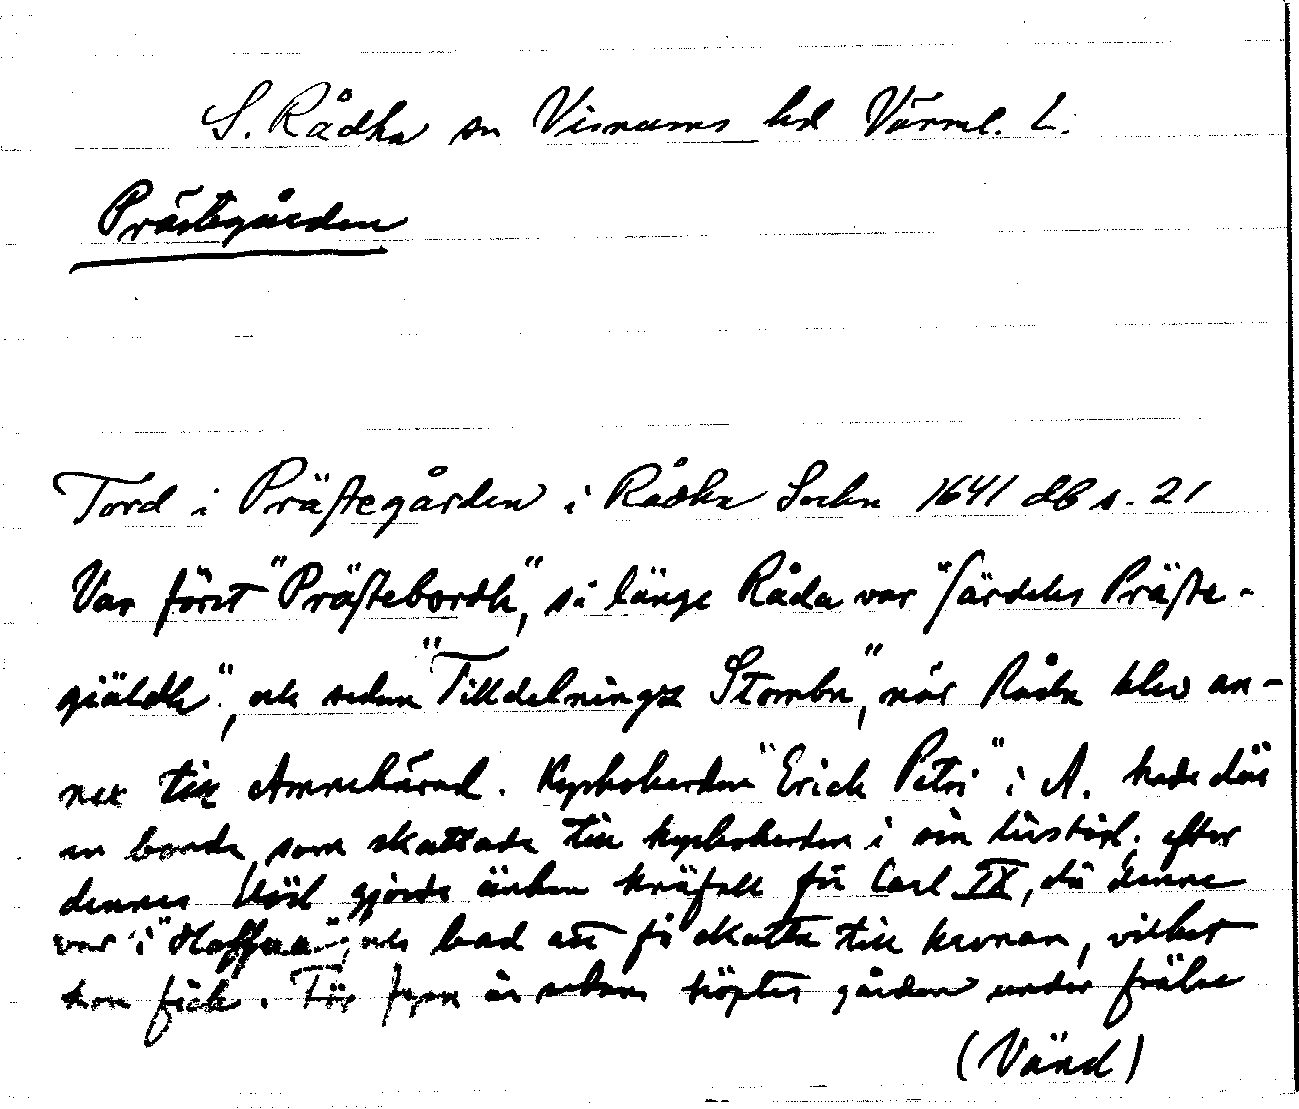 S. Rådha sn Visnums hd Värml. L.
Prästegården
Tord i Prästegården i Rådha Sochn 1641 db s. 21
Var först "Prästebordh", så länge Råda var "särdeles Präste-
giäldh", och sedan "Tilldelningz Stombn", när Råda blev an-
nex till Amnehärad. Kyrkoherden "Erich Petri" i A. hade där
en bonde, som skattade till kyrkoherden i sin livstid. efter
dennes död gjorde änkan knäfall för Carl IX, då denne
var i "Hoffua", och bad att få skatta till kronan, vilket
hon fick. För fyra år sedan köptes gården under frälse
(Vänd)